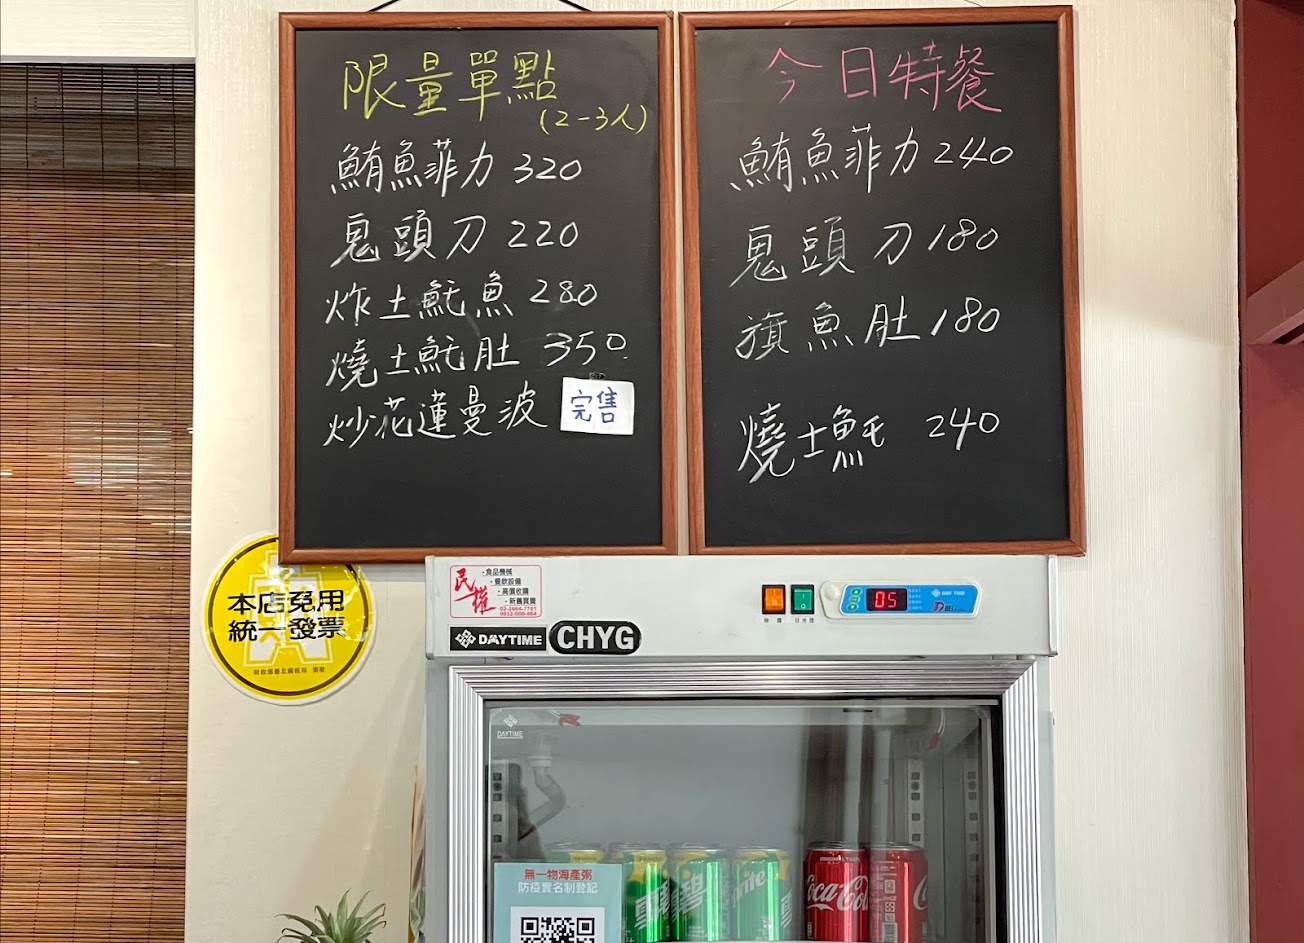 限量單點
(2-3人)
鮪魚菲力 320
鬼頭刀 220
炸土魠魚 280
燒土魠肚 350
炒花蓮曼波 完售
今日特餐
鮪魚菲力 240
鬼頭刀 180
旗魚肚 180
燒土魠 240
本店免用
統一發票
財政部臺北國稅局
民權
・食品機械
・餐飲設備
・高價收購
・新舊買賣
DAYTIME CHYG
05
DAY TIME
DAYTIME
無一物海產粥
防疫實名制登記
雪碧
Sprite
Coca-Cola